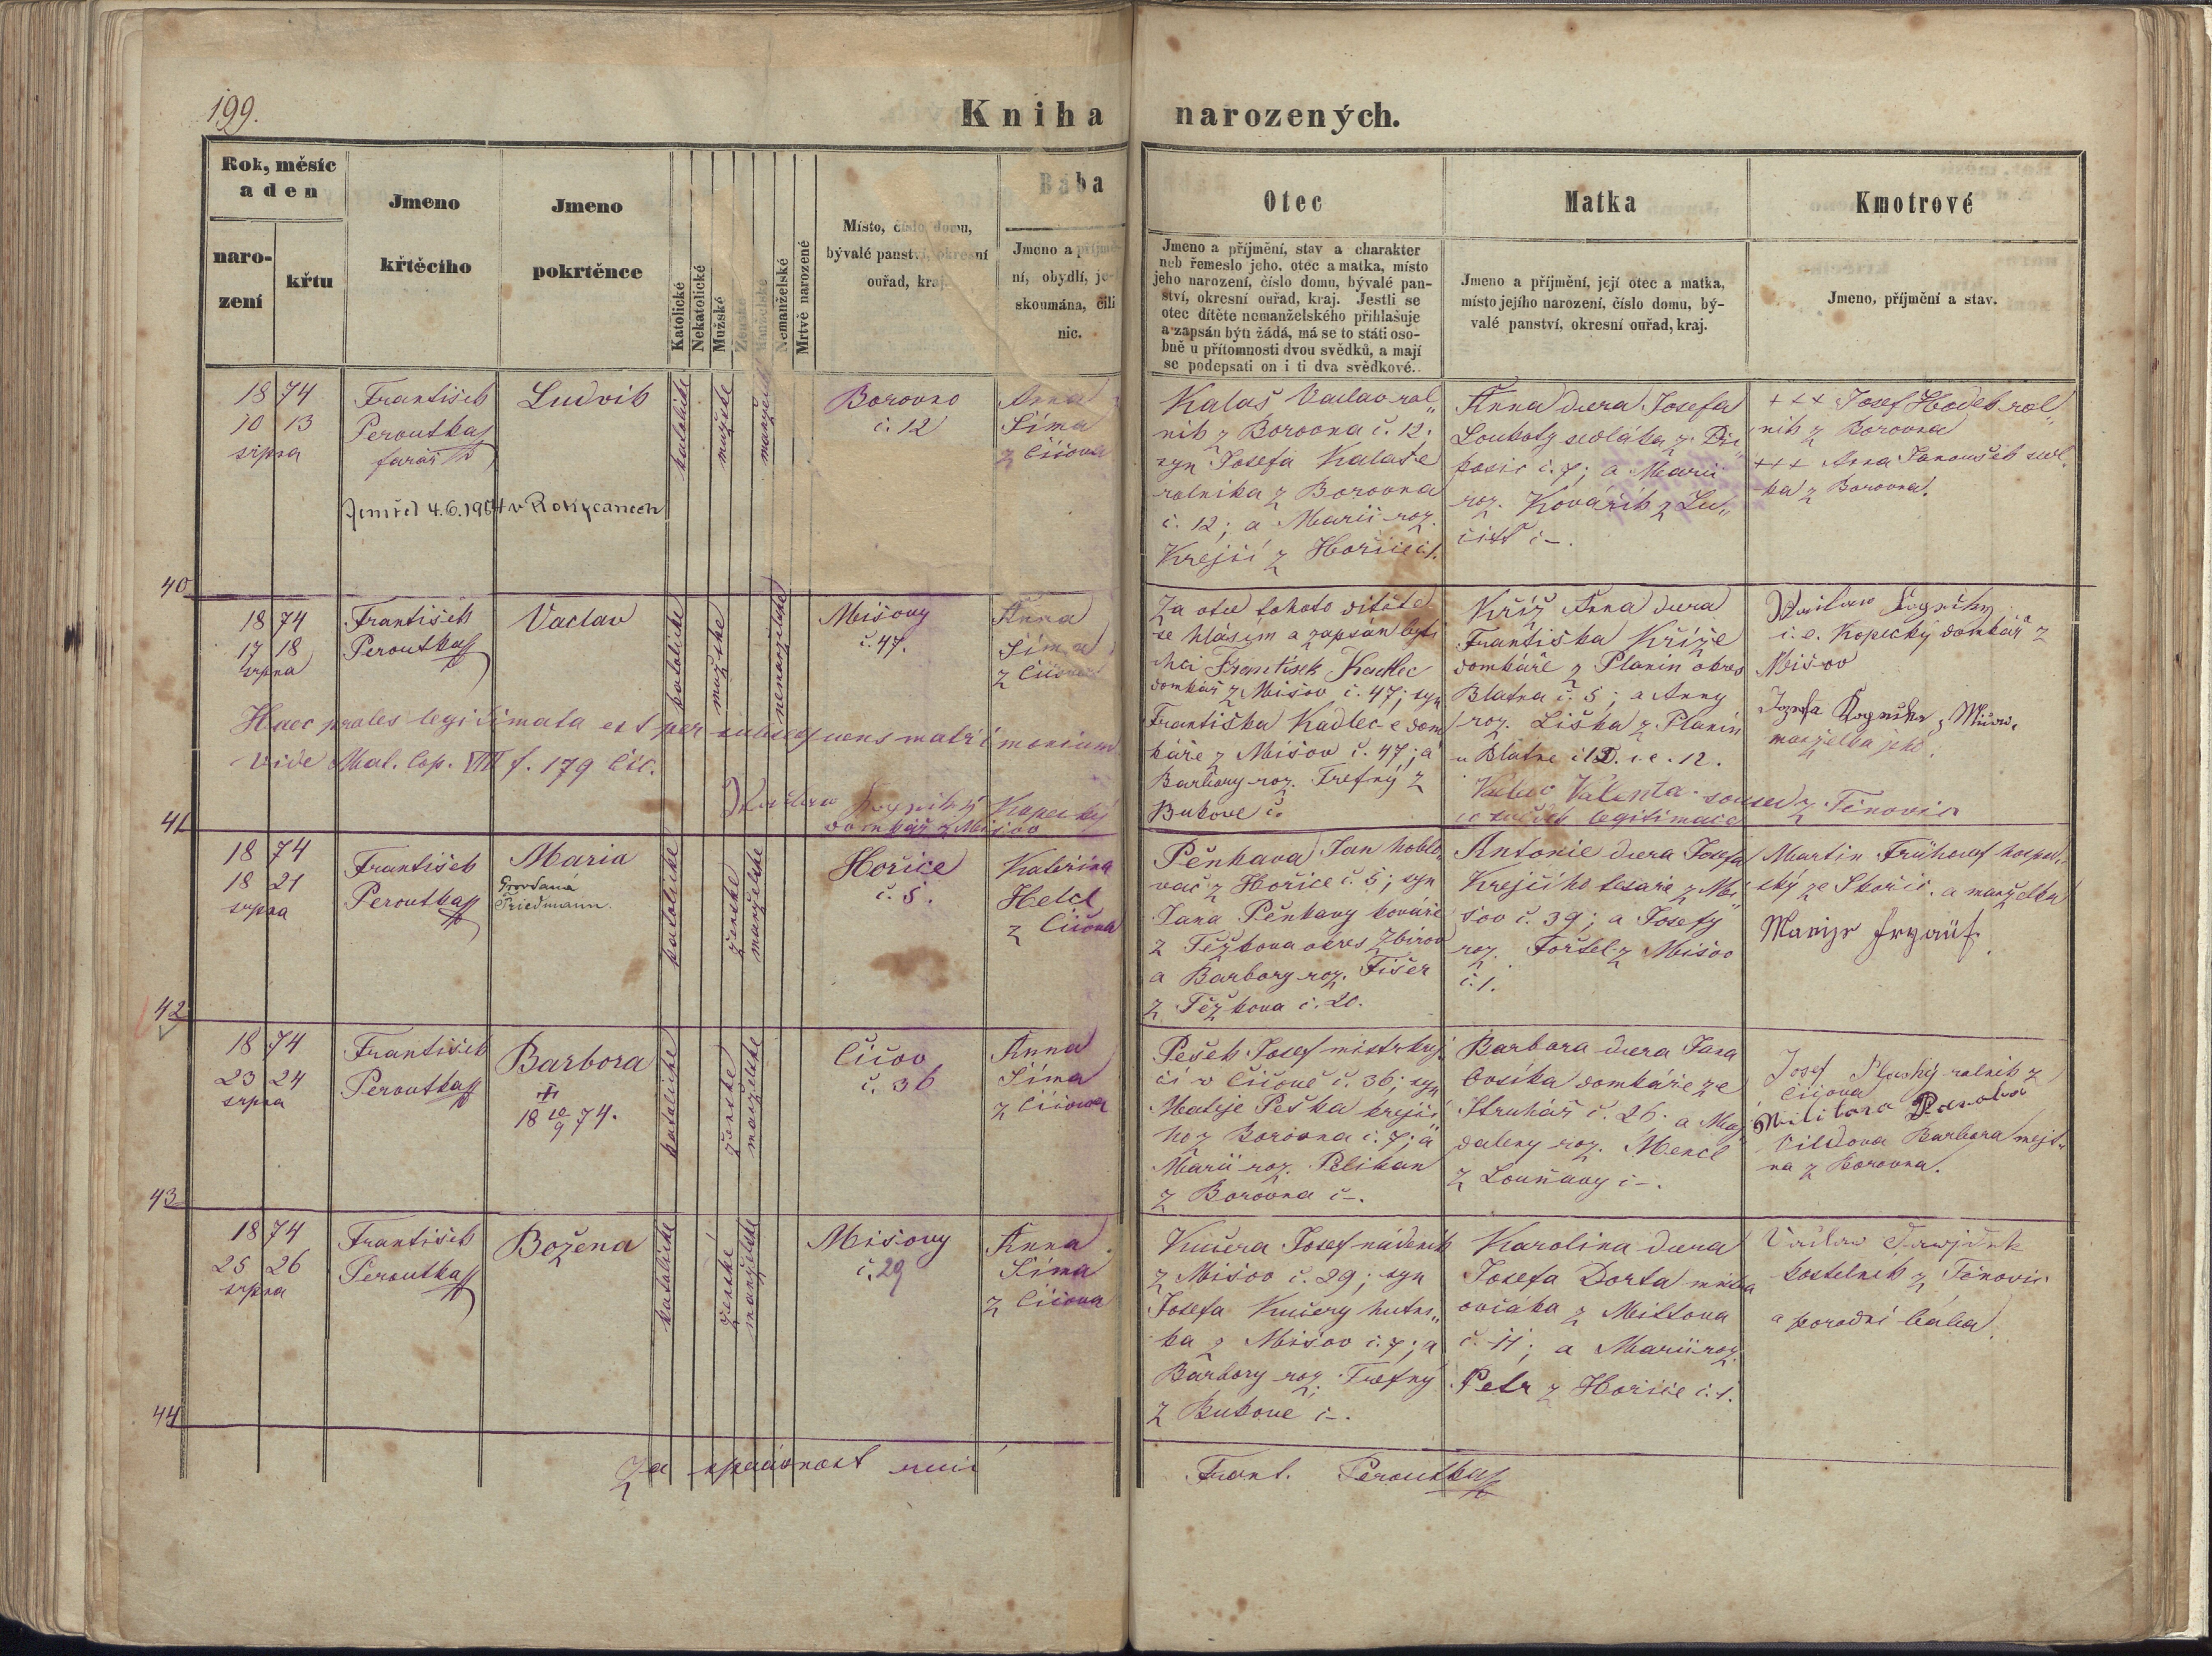 199.
Kniha narozených.
Rok, měsíc
a den
naro-
zení
křtu
Jmeno
křtěcího
Jmeno
pokrtěnce
Katolické
Nekatolické
Mužské
Ženské
Manželské
Nemanželské
Mrtvě narozené
Místo, číslo domu,
bývalé panství, okresní
ouřad, kraj.
Bába
Jmeno a příjme-
ní, obydlí, je-
skoumána, čili
nic.
Otec
Jmeno a příjmění, stav a charakter
neb řemeslo jeho, otec a matka, místo
jeho narození, číslo domu, bývalé pan-
ství, okresní ouřad, kraj. Jestli se
otec dítěte nemanželského přihlašuje
a zapsán býti žádá, má se to státi oso-
bně u přítomnosti dvou svědků, a mají
se podepsati on i ti dva svědkové.
Matka
Jmeno a příjmění, její otec a matka,
místo jejího narození, číslo domu, bý-
valé panství, okresní ouřad, kraj.
Kmotrové
Jmeno, příjmění a stav.
1874
10 13
srpna
František
Peroutka
farář
Ludvik
Zemřel 4.6.1964 v Rokycanech
katolické
mužské
manželské
Borovno
č. 12
Anna
Šíma
z Čičova
Kalaš Vaclav rol„
nik z Borovna č. 12;
syn Josefa Kalaše
rolnika z Borovna
č. 12; a Marii roz.
Krejčí z Hořice č. 1.
Anna dcera Josefa
Loukoty sedláka z
č. 7; a Marii
roz. Kovářik z Lu„
čišť č –.
+++ Josef Hodek rol„
nik z Borovna
+++ Anna Janoušek
ka z Borovna.
40
1874
17 18
srpna
František
Peroutka
Vaclav
katolické
mužské
nemanželské
Mišovy
č. 47.
Anna
Šíma
z Čičova
Haec proles legitimata est per subsequens matrimonium
vide Mat. Cop. VIII f. 179 Čič.
Kopecký
domkář z Mišov
Za otce tohoto ditěte
se hlásím a zapsán byti
chci František Kadlec
domkář z Mišov č. 47; syn
Františka Kadlec-e dom
káře z Mišov č. 47; a
Barbory roz. Trefný z
Bukové č.
Kříž Anna dcera
Františka Kříže
domkáře z Planin okres
Blatna č. 5; a Anny
roz. Liška z Planin
u Blatne č 12. i.e. 12.
Valenta soused z Těnovic
co svědek legitimace
i.e. Kopecký domkář z
Mišov
z Mišov,
manželka jeho.
41
1874
18 21
srpna
František
Peroutka
Maria
Provdaná
Friedmann.
katolické
ženské
manželské
Hořice
č. 5.
Kateřina
Helcl
z Čičova
Pěnkava Jan hoblo„
vač z Hořice č. 5; syn
Jana Pěnkavy kováře
z Těžkova okres Zbirov
a Barbory roz. Fišer
z Těžkova č. 20.
Antonie dcera Josefa
Krejčího tesaře z Mi„
šov č. 39; a Josefy
roz. Foršel z Mišov
č. 1.
Martin Frühauf hospod„
ský ze Skořic. a manželka
42
1874
23 24
srpna
František
Peroutka
Barbora
18 10/9 74.
katolické
ženské
manželské
Čičov
č. 36
Anna
Šíma
z Čičova
Pešek Josef mistr krej„
čí v Čičově č. 36; syn
Mateje Peška krejčí„
ho z Borovna č. 7; a
Marii roz. Pelikan
z Borovna č –.
Barbara dcera Jana
Cvsíka domkáře ze
Struhář č. 26; a Mag„
daleny roz. Mencl
z Louňavy č –.
Josef Plaský rolnik z
Čičova
Barbora mejt„
na z Borovna.
43
1874
25 26
srpna
František
Peroutka
Božena
katolické
ženské
manželské
Mišovy
č. 29
Anna
Šíma
z Čičova
Kučera Josef nádeník
z Mišov č. 29; syn
Josefa Kučery hutni„
ka z Mišov č. 7; a
Barbory roz. Trefný
z Bukové č –.
Karolina dcera
Josefa Dorta mistra
ovčáka z Mittova
č. 11; a Marii roz.
Petr z Hořice č. 1.
kostelnik z Těnovic
a porodní bába.
44
Za správnost ručí Frant. Peroutka